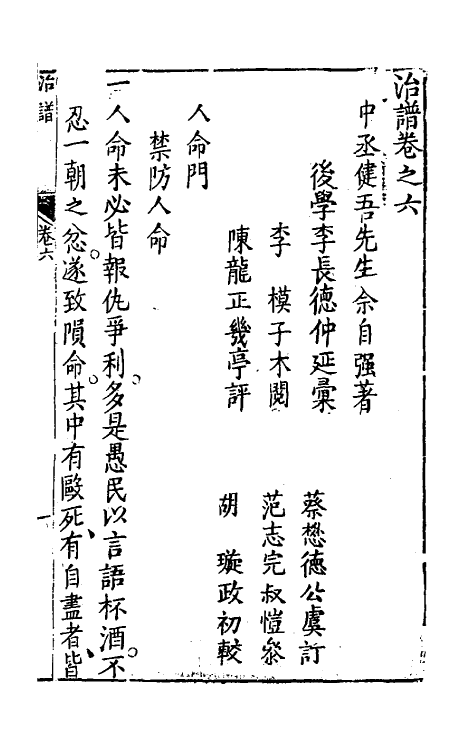 治譜卷之六
中丞健吾先生佘自强著
後學李長德仲延彙
蔡懋德公虞訂
李模子木閱
范志完叔愷叅
陳龍正幾亭評
胡璇政初較
人命門
禁防人命
一人命未必皆報仇爭利。多是愚民以言語杯酒。不
忍一朝之忿。遂致隕命。其中有毆死、有自盡者、皆
治譜
卷六
一